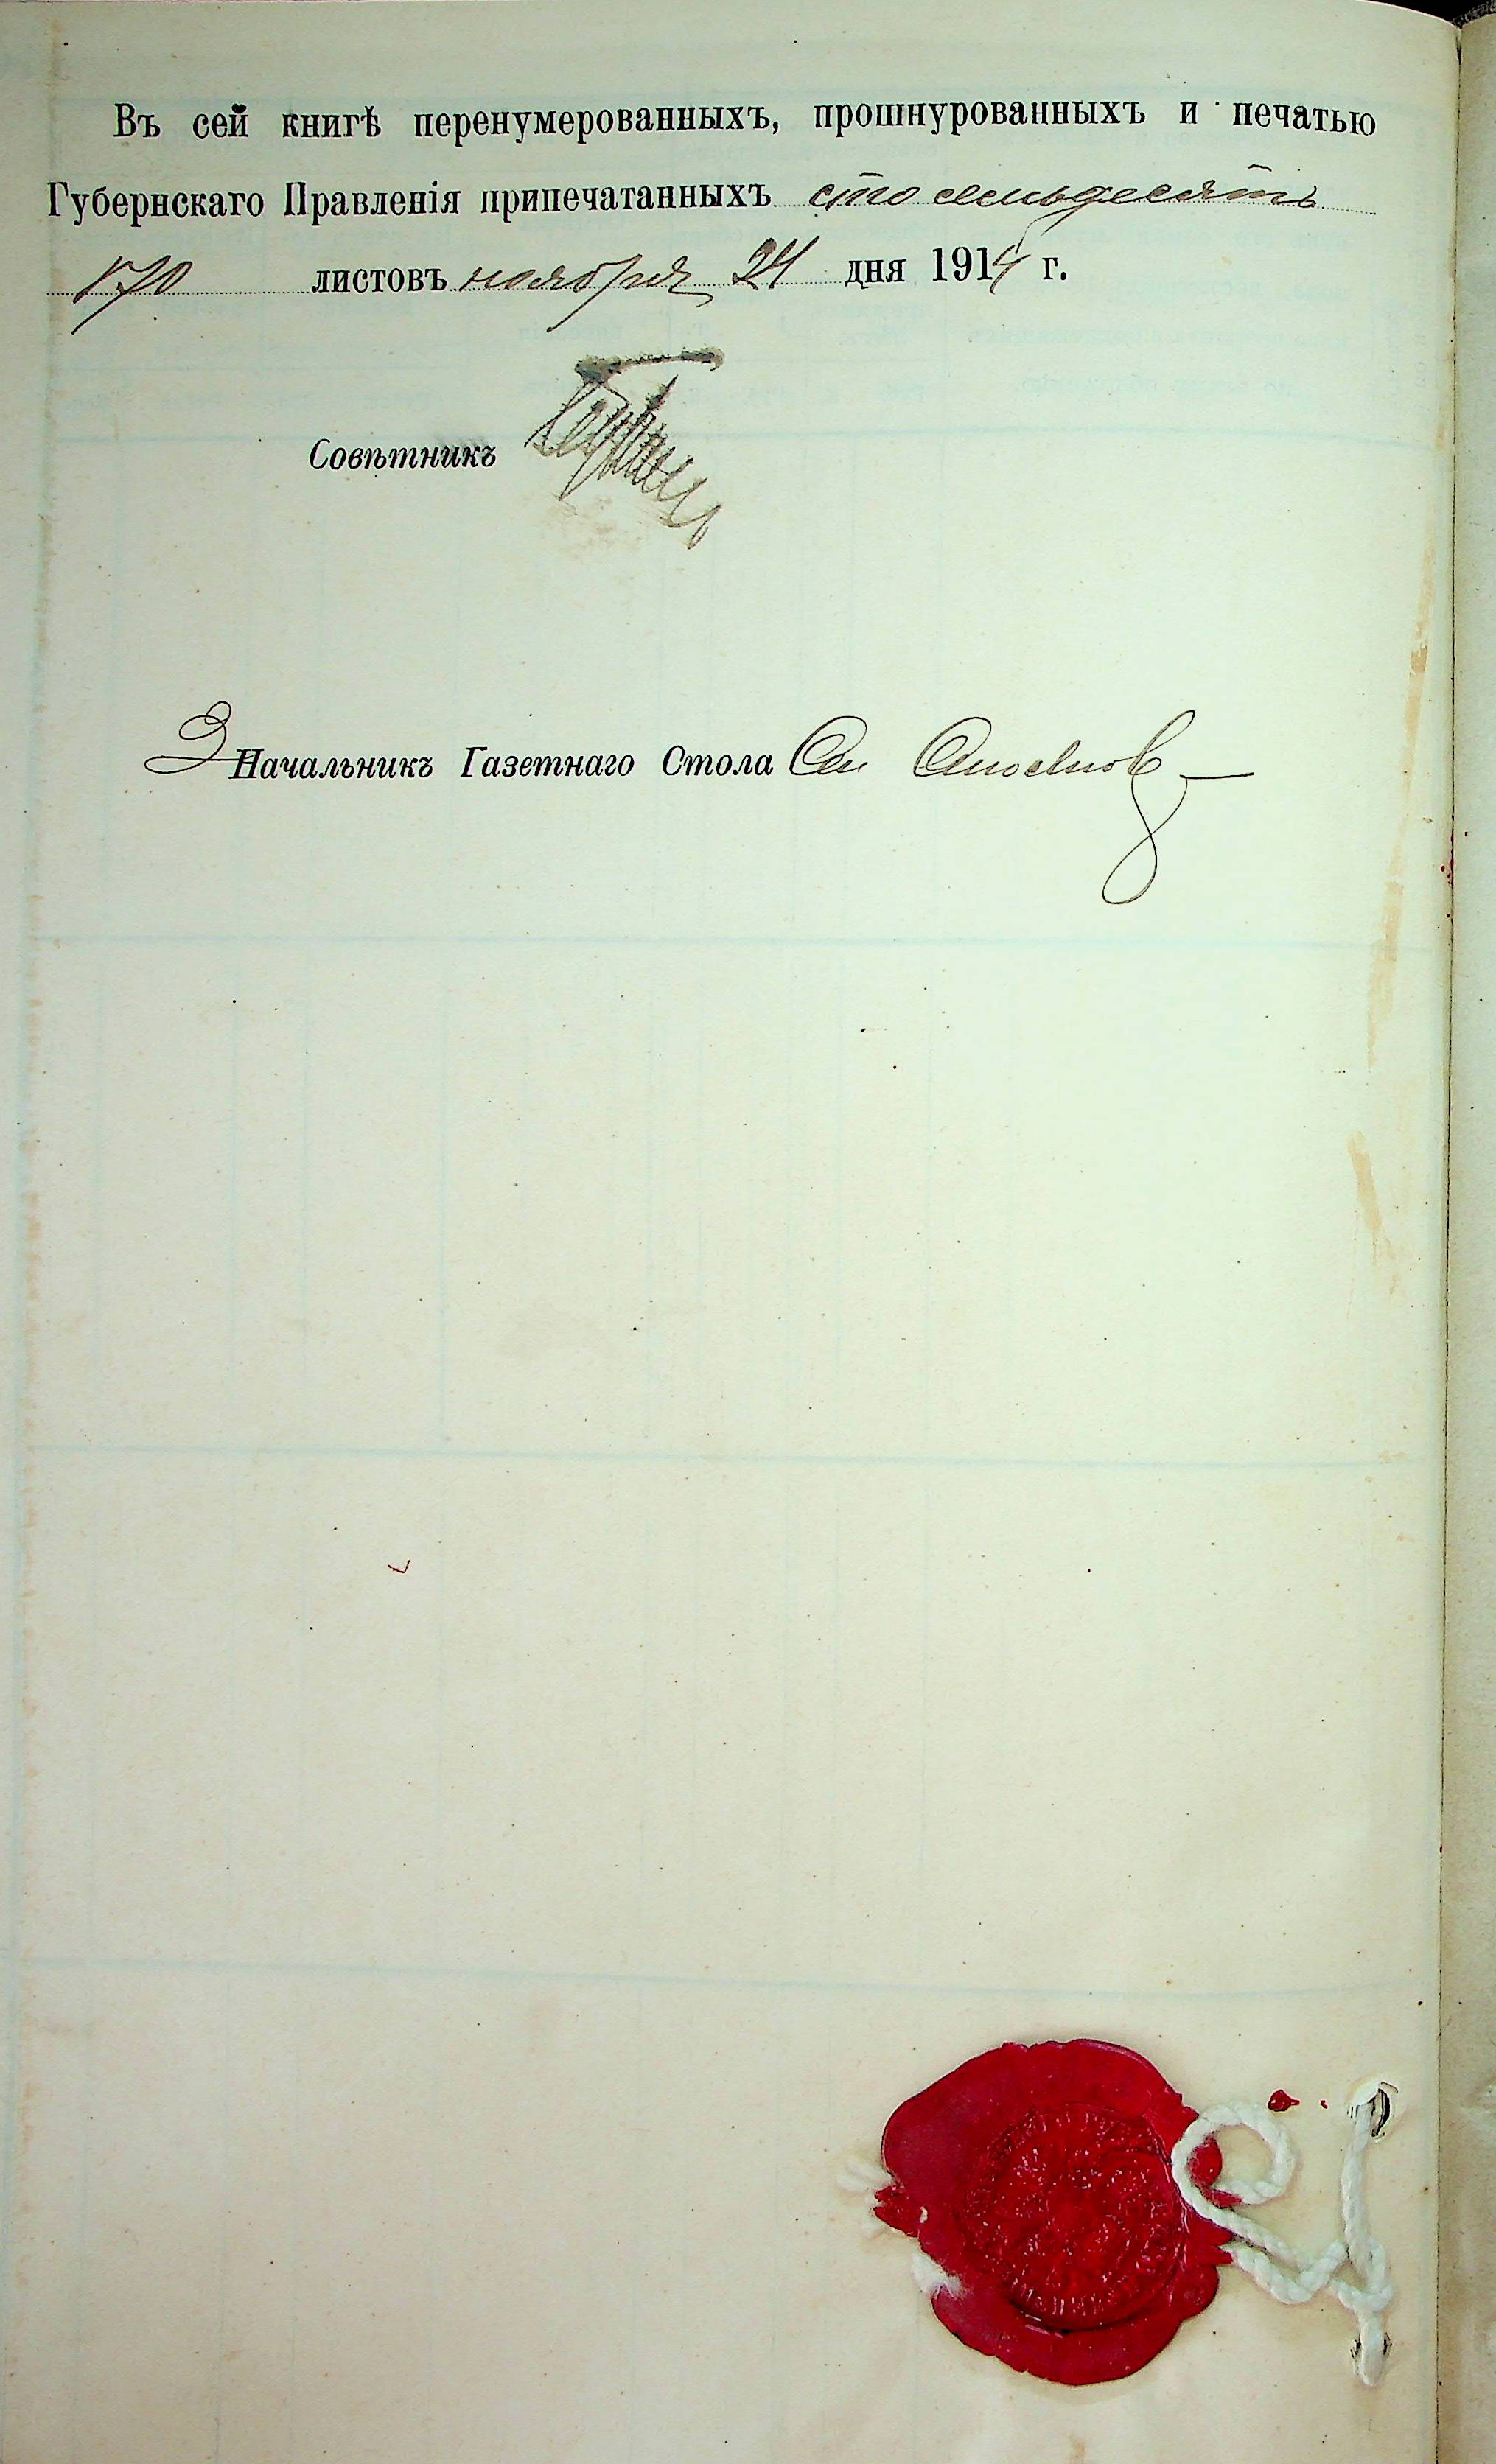 Въ сей книгѣ перенумерованныхъ, прошнурованныхъ и печатью
Губернскаго Правленія припечатанныхъ сто семьдесятъ
170 листовъ ноября 24 дня 1914 г.
Совѣтникъ
Начальникъ Газетнаго Стола